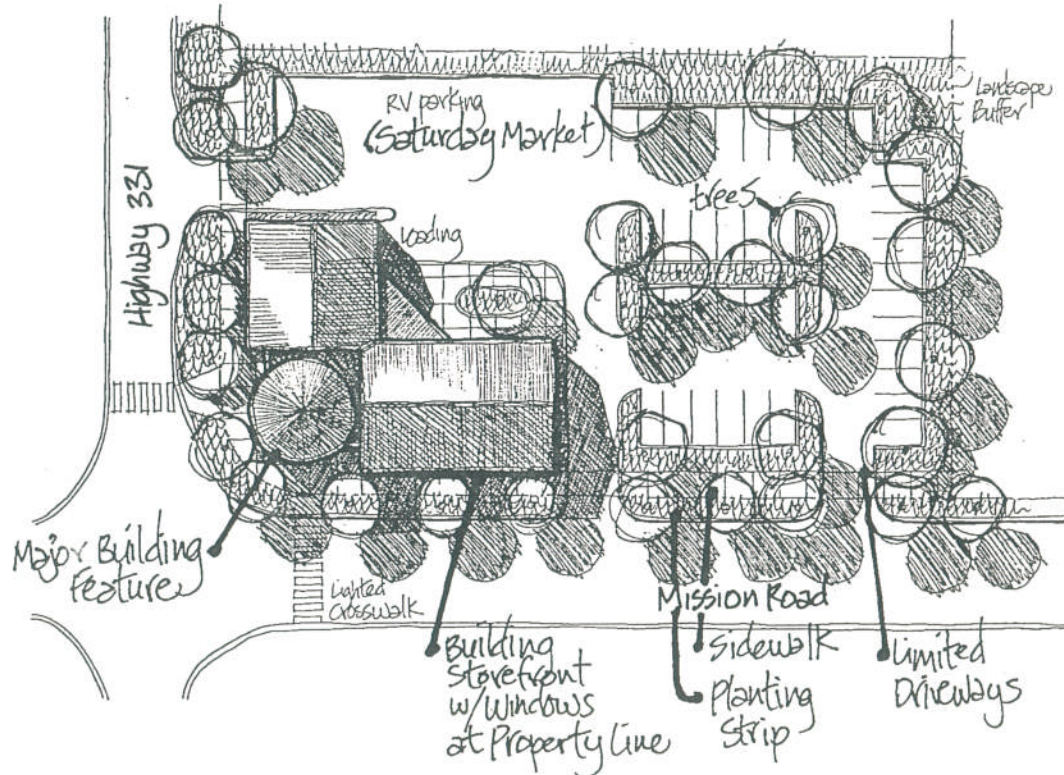 RV parking
(Saturday Market)
Landscape
Buffer
Highway 331
trees
loading
Major Building
Feature
Lighted
Crosswalk
Mission Road
Building
Storefront
w/Windows
at Property Line
Sidewalk
Planting
Strip
Limited
Driveways